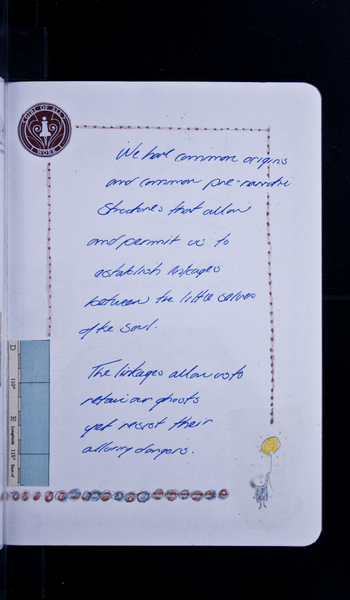 GIRL OF ALL
WORK
We have common origins
and common pre-narrative
structures that allow
and permit us to
establish linkages
between the little selves
of the soul.
The linkages allow us to
retain our ghosts
yet resist their
alluring dangers.
D
110°
E
Longitude
115°
East of